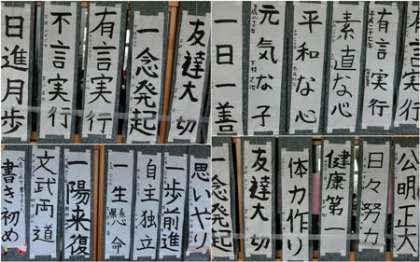 友達大切
一念発起
有言実行
不言実行
日進月歩
有言実行
素直な心
平和な心
元気な子
一日一善
思いやり
一歩前進
自主独立
一生懸命
一陽来復
文武両道
書き初め
公明正大
日々努力
健康第一
体力作り
友達大切
一念発起